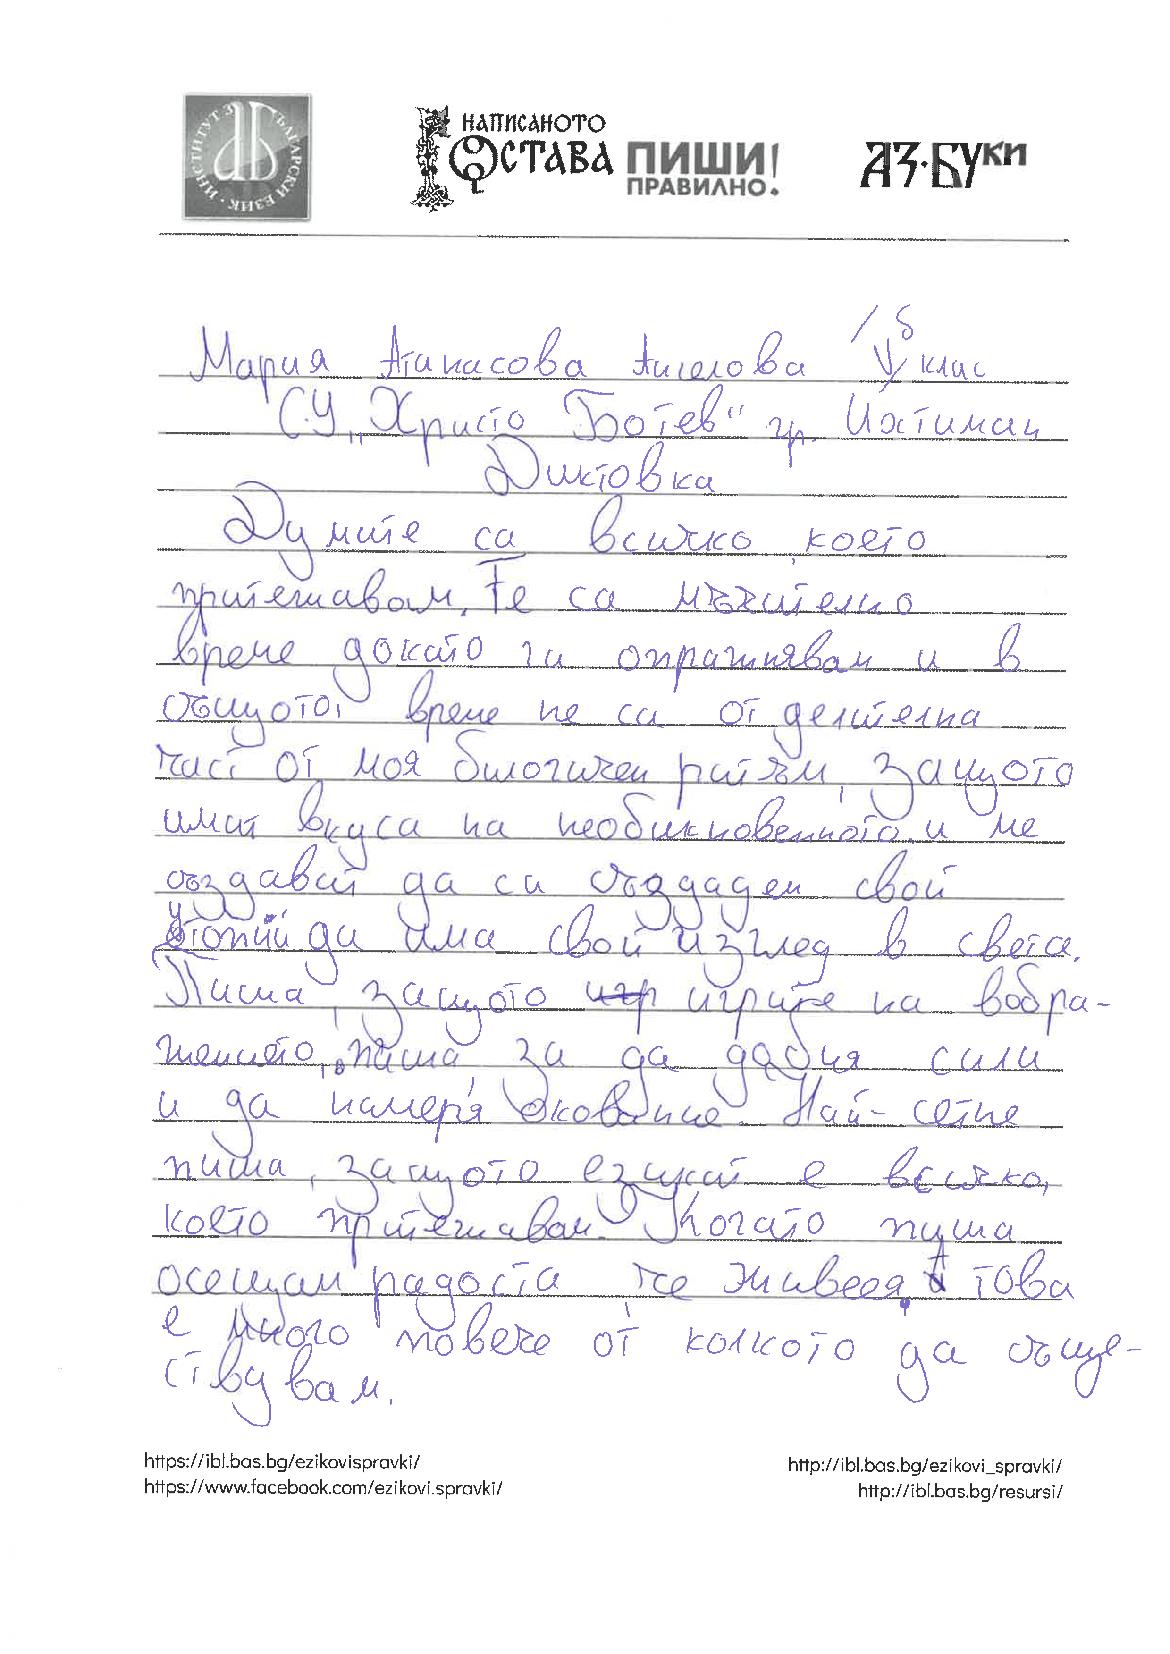 ИНСТИТУТ ЗА БЪЛГАРСКИ ЕЗИК
НАПИСАНОТО
ОСТАВА ПИШИ!
ПРАВИЛНО.
АЗ·БУКИ
Мария Атанасова Ангелова V б клас
СУ „Христо Ботев" гр. Ихтиман
Диктовка
Думите са всичко, което
притежавам. Те са мъчително
време докато ги опражнявам и в
същото, време не са от делителна
част от моя биологичен ритъм, защото
имат вкуса на необикновенното и ме
създават да си създаден свой
утопии да има свой изглед в света.
Пиша, защото игрите на вобра-
жението, пиша, за да добия сили
и да намеря окование. Най-сетне
пиша, защото езикът е всичко,
което притежавам. Когато пиша
осещам радоста че живея, а това
е много повече от колкото да съще-
ствувам.
https://ibl.bas.bg/ezikovispravki/
https://www.facebook.com/ezikovi.spravki/
http://ibl.bas.bg/ezikovi_spravki/
http://ibl.bas.bg/resursi/